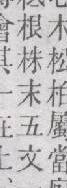 木松柏屬當
根株末五文
會其一在上